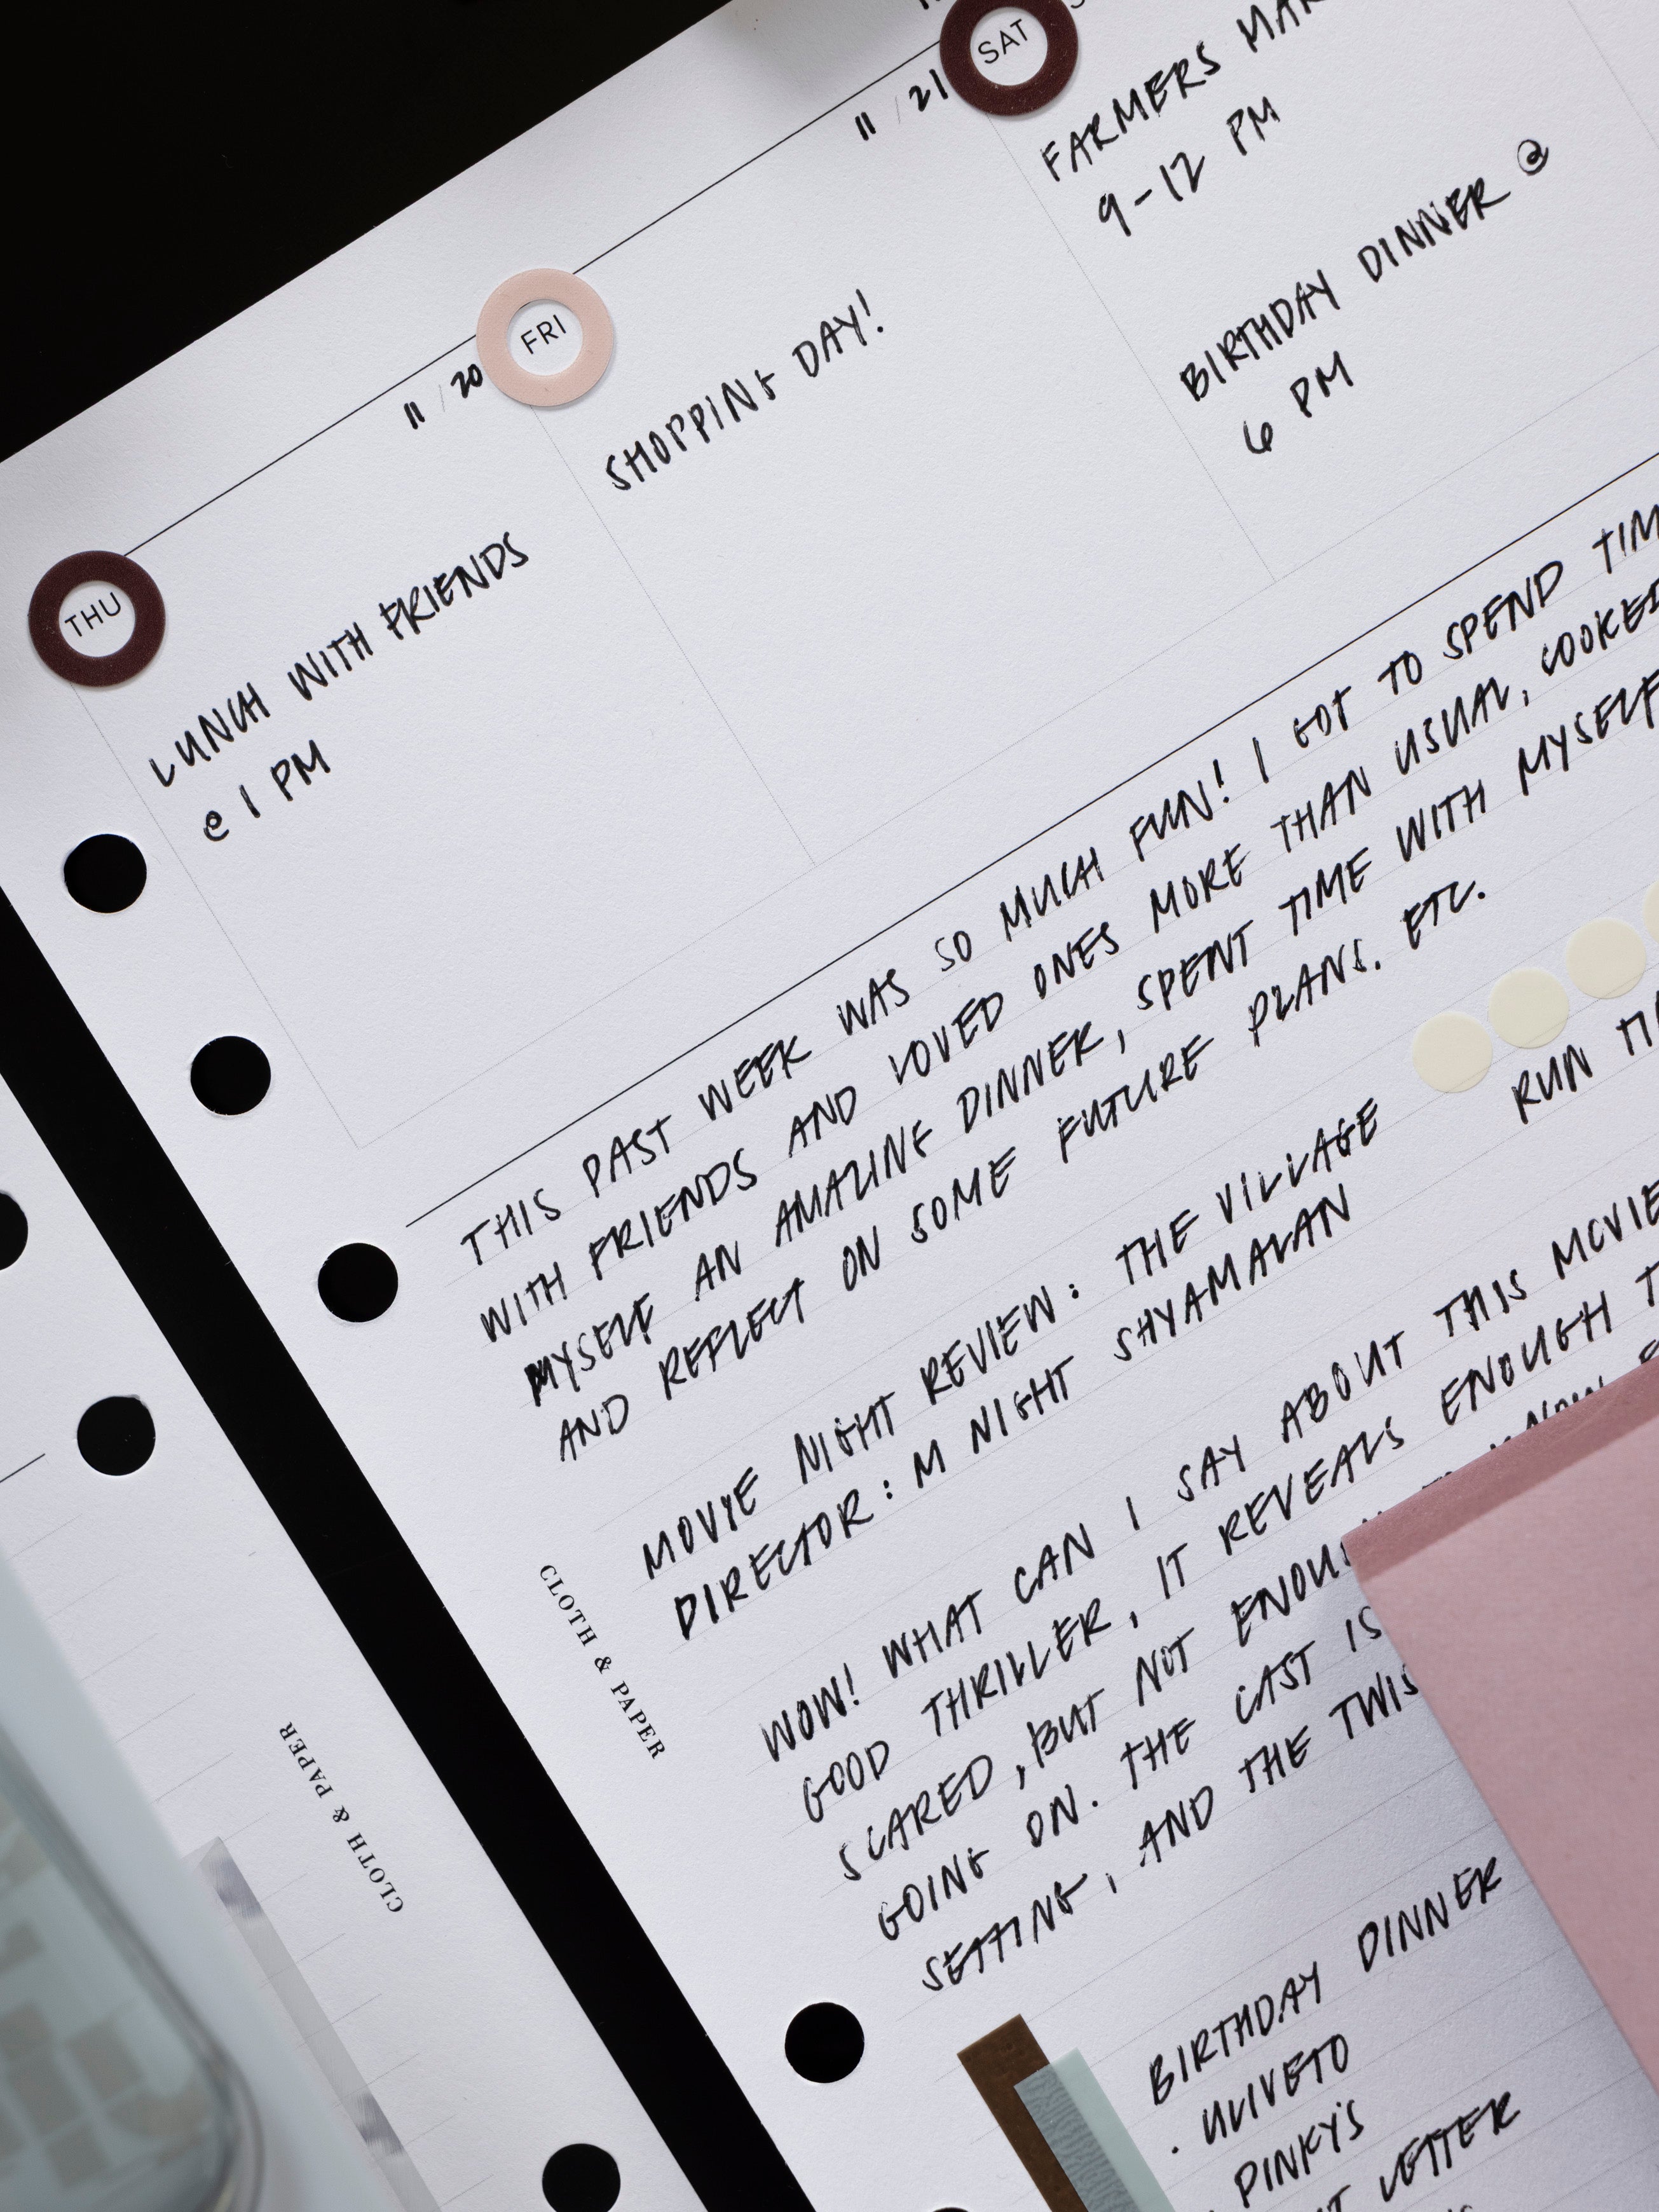 THU
11/20
LUNCH WITH FRIENDS
@ 1 PM
FRI
11/21
SHOPPING DAY!
SAT
FARMERS
9-12 PM
BIRTHDAY DINNER @
6 PM
THIS PAST WEEK WAS SO MUCH FUN! I GOT TO SPEND
WITH FRIENDS AND LOVED ONES MORE THAN USUAL, COOKED
MYSELF AN AMAZING DINNER, SPENT TIME WITH MYSELF
AND REFLECT ON SOME FUTURE PLANS. ETC.
MOVIE NIGHT REVIEW: THE VILLAGE
RUN
DIRECTOR: M NIGHT SHYAMALAN
WOW! WHAT CAN I SAY ABOUT THIS MOVIE
GOOD THRILLER, IT REVEALS ENOUGH
SCARED, BUT NOT KNOW
GOING ON. THE CAST IS
SETTING, AND THE
BIRTHDAY DINNER
. ULIVETO
PINKY'S
LETTER
CLOTH & PAPER
CLOTH & PAPER